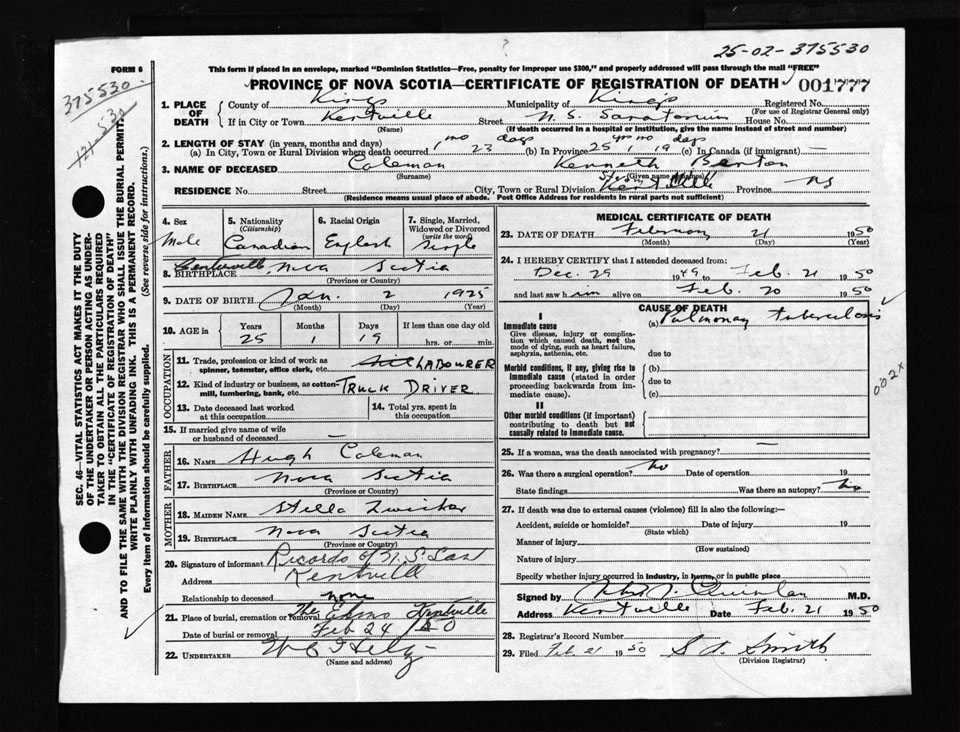 25-02-375530
FORM 6
This form if placed in an envelope, marked "Dominion Statistics—Free, penalty for improper use $300," and properly addressed will pass through the mail "FREE"
375530-
PROVINCE OF NOVA SCOTIA—CERTIFICATE OF REGISTRATION OF DEATH 001777
SEC. 46—VITAL STATISTICS ACT MAKES IT THE DUTY
OF THE UNDERTAKER OR PERSON ACTING AS UNDER-
TAKER TO OBTAIN ALL THE PARTICULARS REQUIRED
IN THE "CERTIFICATE OF REGISTRATION OF DEATH"
AND TO FILE THE SAME WITH THE DIVISION REGISTRAR WHO SHALL ISSUE THE BURIAL PERMIT.
WRITE PLAINLY WITH UNFADING INK. THIS IS A PERMANENT RECORD.
Every item of information should be carefully supplied. (See reverse side for instructions.)
1. PLACE OF DEATH
County of Kings Municipality of Kings Registered No.
(For use of Registrar General only)
If in City or Town Kentville Street N. S. Sanatorium House No.
(Name) (If death occurred in a hospital or institution, give the name instead of street and number)
2. LENGTH OF STAY (in years, months and days)
(a) In City, Town or Rural Division where death occurred 1 mo 23 days (b) In Province 25 yrs 1 mo 19 days (c) In Canada (if immigrant) —
3. NAME OF DECEASED Coleman Kenneth Benton
(Surname) (Given names)
RESIDENCE No. Street City, Town or Rural Division Kentville Province NS
(Residence means usual place of abode. Post Office Address for residents in rural parts not sufficient)
4. Sex
Male
5. Nationality
(Citizenship)
Canadian
6. Racial Origin
English
7. Single, Married,
Widowed or Divorced
(write the word)
Single
8. BIRTHPLACE Centreville Nova Scotia
(Province or Country)
9. DATE OF BIRTH Jan. 2 1925
(Month) (Day) (Year)
10. AGE in
Years Months Days If less than one day old
25 1 19 hrs. or min.
OCCUPATION
11. Trade, profession or kind of work as
spinner, teamster, office clerk, etc. LABOURER
12. Kind of industry or business, as cotton-
mill, lumbering, bank, etc. TRUCK DRIVER
13. Date deceased last worked
at this occupation
14. Total yrs. spent in
this occupation
15. If married give name of wife
or husband of deceased —
FATHER
16. NAME Hugh Coleman
17. BIRTHPLACE Nova Scotia
(Province or Country)
MOTHER
18. MAIDEN NAME Stella Zwicker
19. BIRTHPLACE Nova Scotia
(Province or Country)
20. Signature of informant Records of N. S. San
Address Kentville
Relationship to deceased none
21. Place of burial, cremation or removal The Elms Kentville
Date of burial or removal Feb 24 / 50
22. UNDERTAKER
(Name and address)
MEDICAL CERTIFICATE OF DEATH
23. DATE OF DEATH February 21 1950
(Month) (Day) (Year)
24. I HEREBY CERTIFY that I attended deceased from:
Dec. 29 1949 to Feb. 21 1950
and last saw him alive on Feb. 20 1950
CAUSE OF DEATH
I
Immediate cause
Give disease, injury or complica-
tion which caused death, not the
mode of dying, such as heart failure,
asphyxia, asthenia, etc.
(a) Pulmonary tuberculosis
due to
Morbid conditions, if any, giving rise to
immediate cause (stated in order
proceeding backwards from im-
mediate cause).
(b)
due to
(c)
II
Other morbid conditions (if important)
contributing to death but not
causally related to immediate cause.
002x
25. If a woman, was the death associated with pregnancy? —
26. Was there a surgical operation? no Date of operation 19
State findings Was there an autopsy? No
27. If death was due to external causes (violence) fill in also the following:—
Accident, suicide or homicide? Date of injury 19
(State which)
Manner of injury
(How sustained)
Nature of injury
Specify whether injury occurred in industry, in home, or in public place
Signed by Quinlan M.D.
Address Kentville Date Feb. 21 1950
28. Registrar's Record Number
29. Filed Feb. 21 1950 Smith
(Division Registrar)